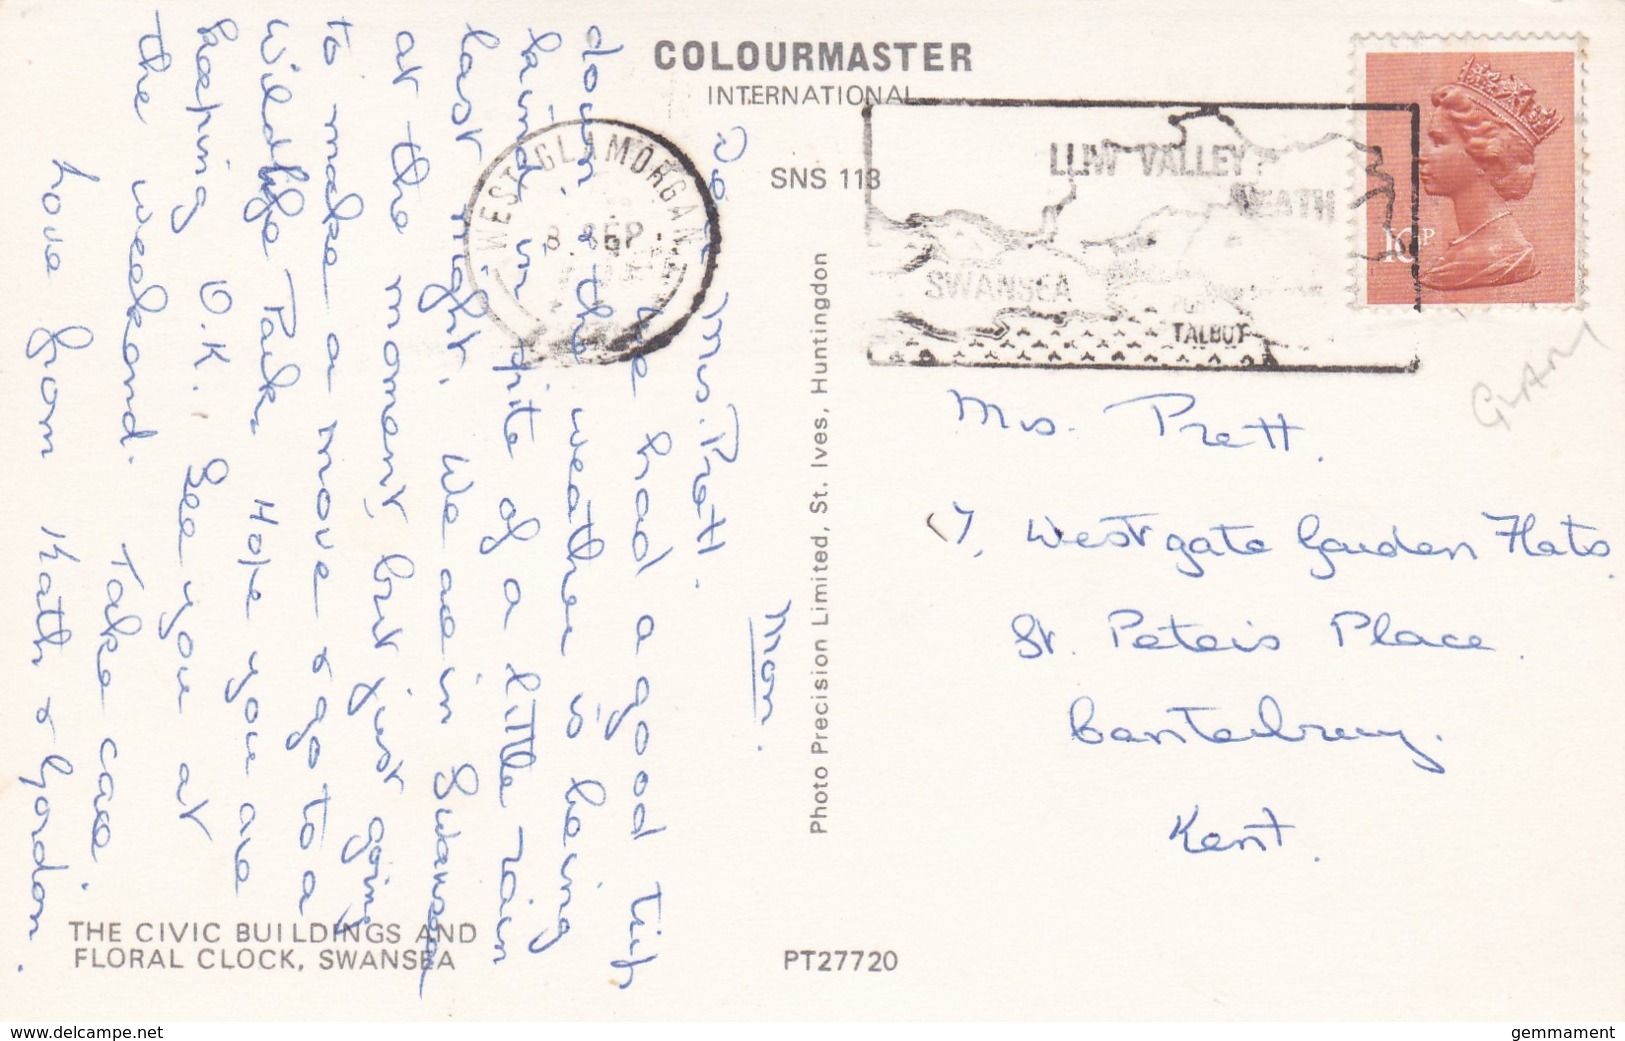 COLOURMASTER
INTERNATIONAL
SNS 118
WEST GLAMORGAN
8 SEP
LLIW VALLEY
NEATH
SWANSEA
PORT
TALBOT
10P
GLAM
Mon.
Mrs. Pratt.
We had a good trip
down & the weather is being
kind in spite of a little rain
last night. We are in Swansea
at the moment, but just going
to make a move & go to a
Wildlife Park. Hope you are
keeping O.K. See you at
the weekend. Take care.
Love from Kath & Gordon.
Mrs. Pratt.
7, Westgate Garden Flats
St. Peters Place.
Canterbury.
Kent.
Photo Precision Limited, St. Ives, Huntingdon
THE CIVIC BUILDINGS AND
FLORAL CLOCK, SWANSEA
PT27720
www.delcampe.net
gemmament